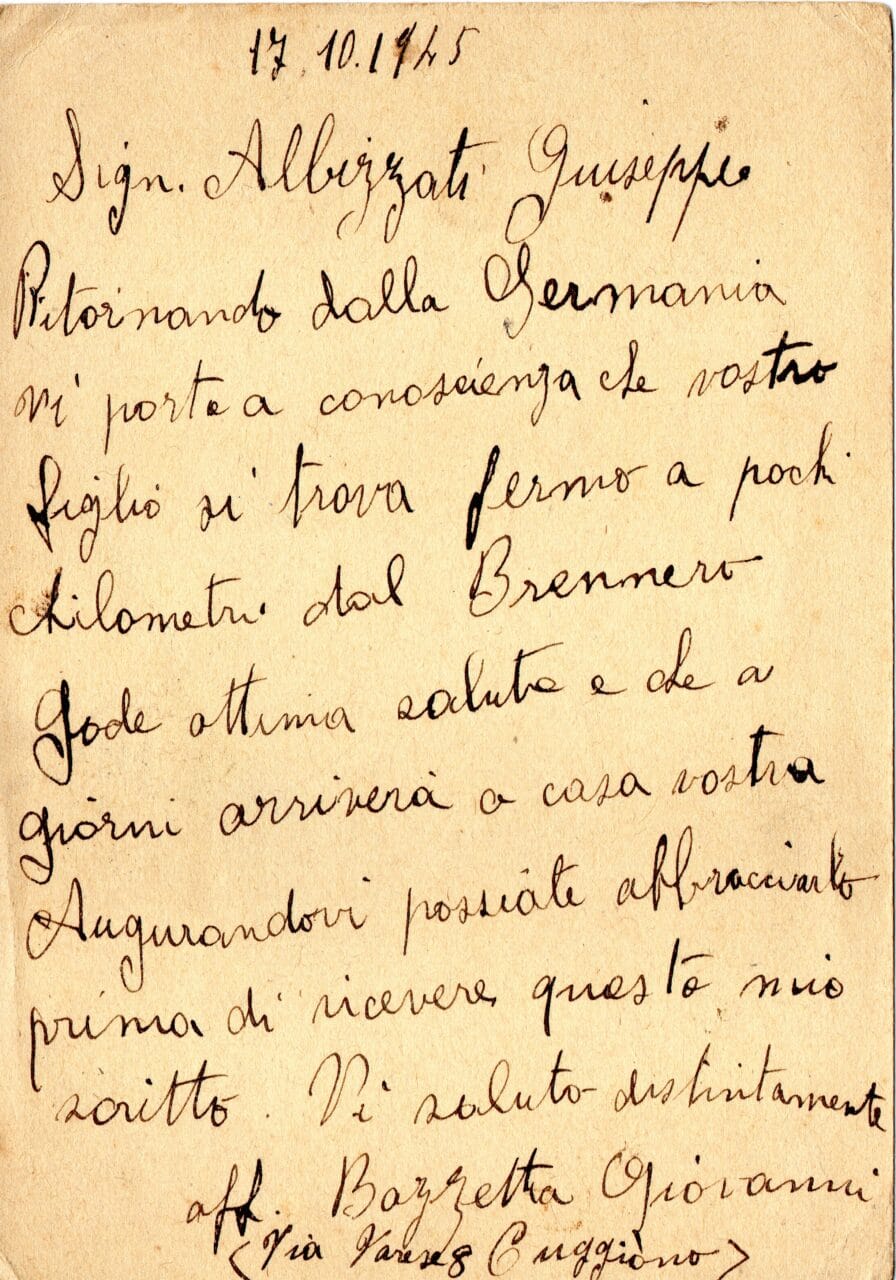 17.10.1945
Sign. Albizzati Giuseppe
Ritornando dalla Germania
vi porto a conoscienza che vostro
figlio si trova fermo a pochi
chilometri dal Brennero
Gode ottima salute e che a
giorni arriverà a casa vostra
Augurandovi possiate abbracciarlo
prima di ricevere questo mio
scritto. Vi saluto distintamente
aff. Bozzetta Giovanni
(Via Varese 8 Cuggiono)